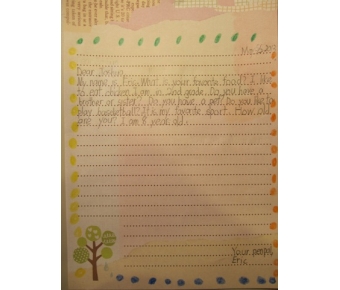 Dear
My name is Eric. What is your favorite food? I like
to eat chicken. I am in 2nd grade. Do you have a
brother or sister? Do you have a pet? Do you like to
play basketball? It is my favorite sport. How old
are you? I am 8 years old.
Your penpal,
Eric